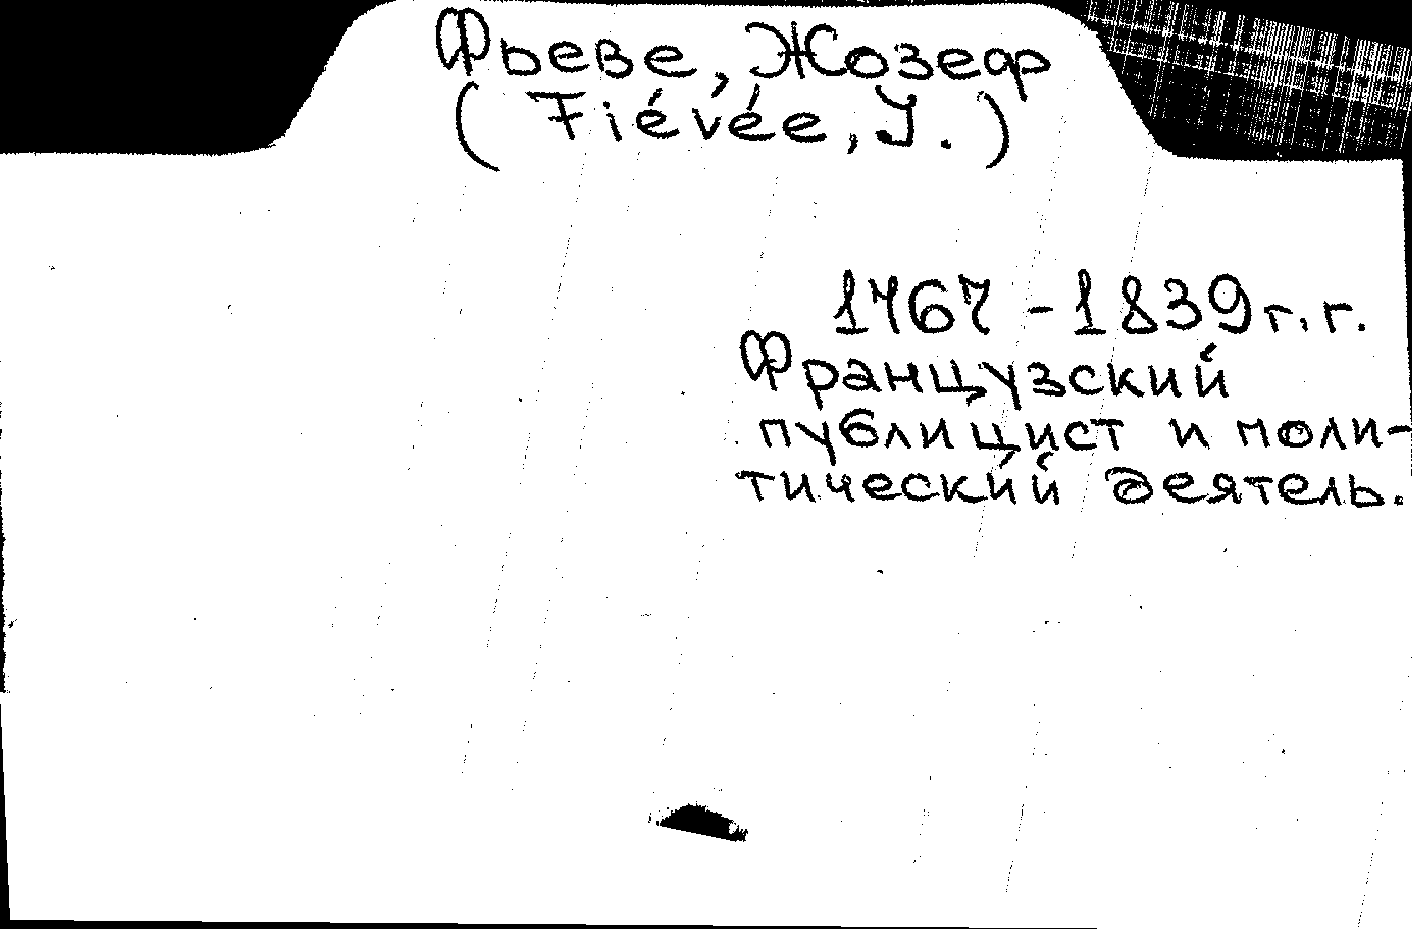 Фьеве, Жозеф
(Fiévée, J.)
1767 - 1839 г. г.
Французский
публицист и поли-
тический деятель.